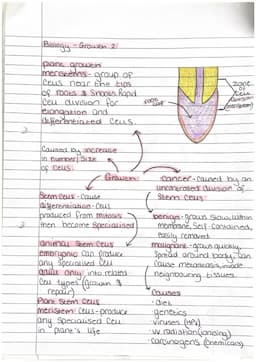 Biology - Growth 2
plant growth
meristems - group of
cells near the tips
of roots & shoots. Rapid
cell division for
elongation and
differentiated cells.
zone
of
cell
division
(meristem)
root cap
Caused by increase
in number/size
of cells.
Growth
cancer - caused by an
uncontrolled division of
stem cells
Stem cells - cause
differentiation - cells
produced from mitosis
then become specialised
benign - grows slow, within
membrane, self contained,
easily removed
malignant - grown quickly,
spread around body, can
cause metastasis, invade
neighbouring tissues.
animal stem cells
embryonic can produce
any specialised cell
adult only into related
cell types (growth &
repair)
Plant stem cells
meristem cells - produce
any specialised cell
in plant's life
Causes
· diet
· genetics
· viruses (HPV)
· uv radiation (ionising)
· carcinogens (chemicals)